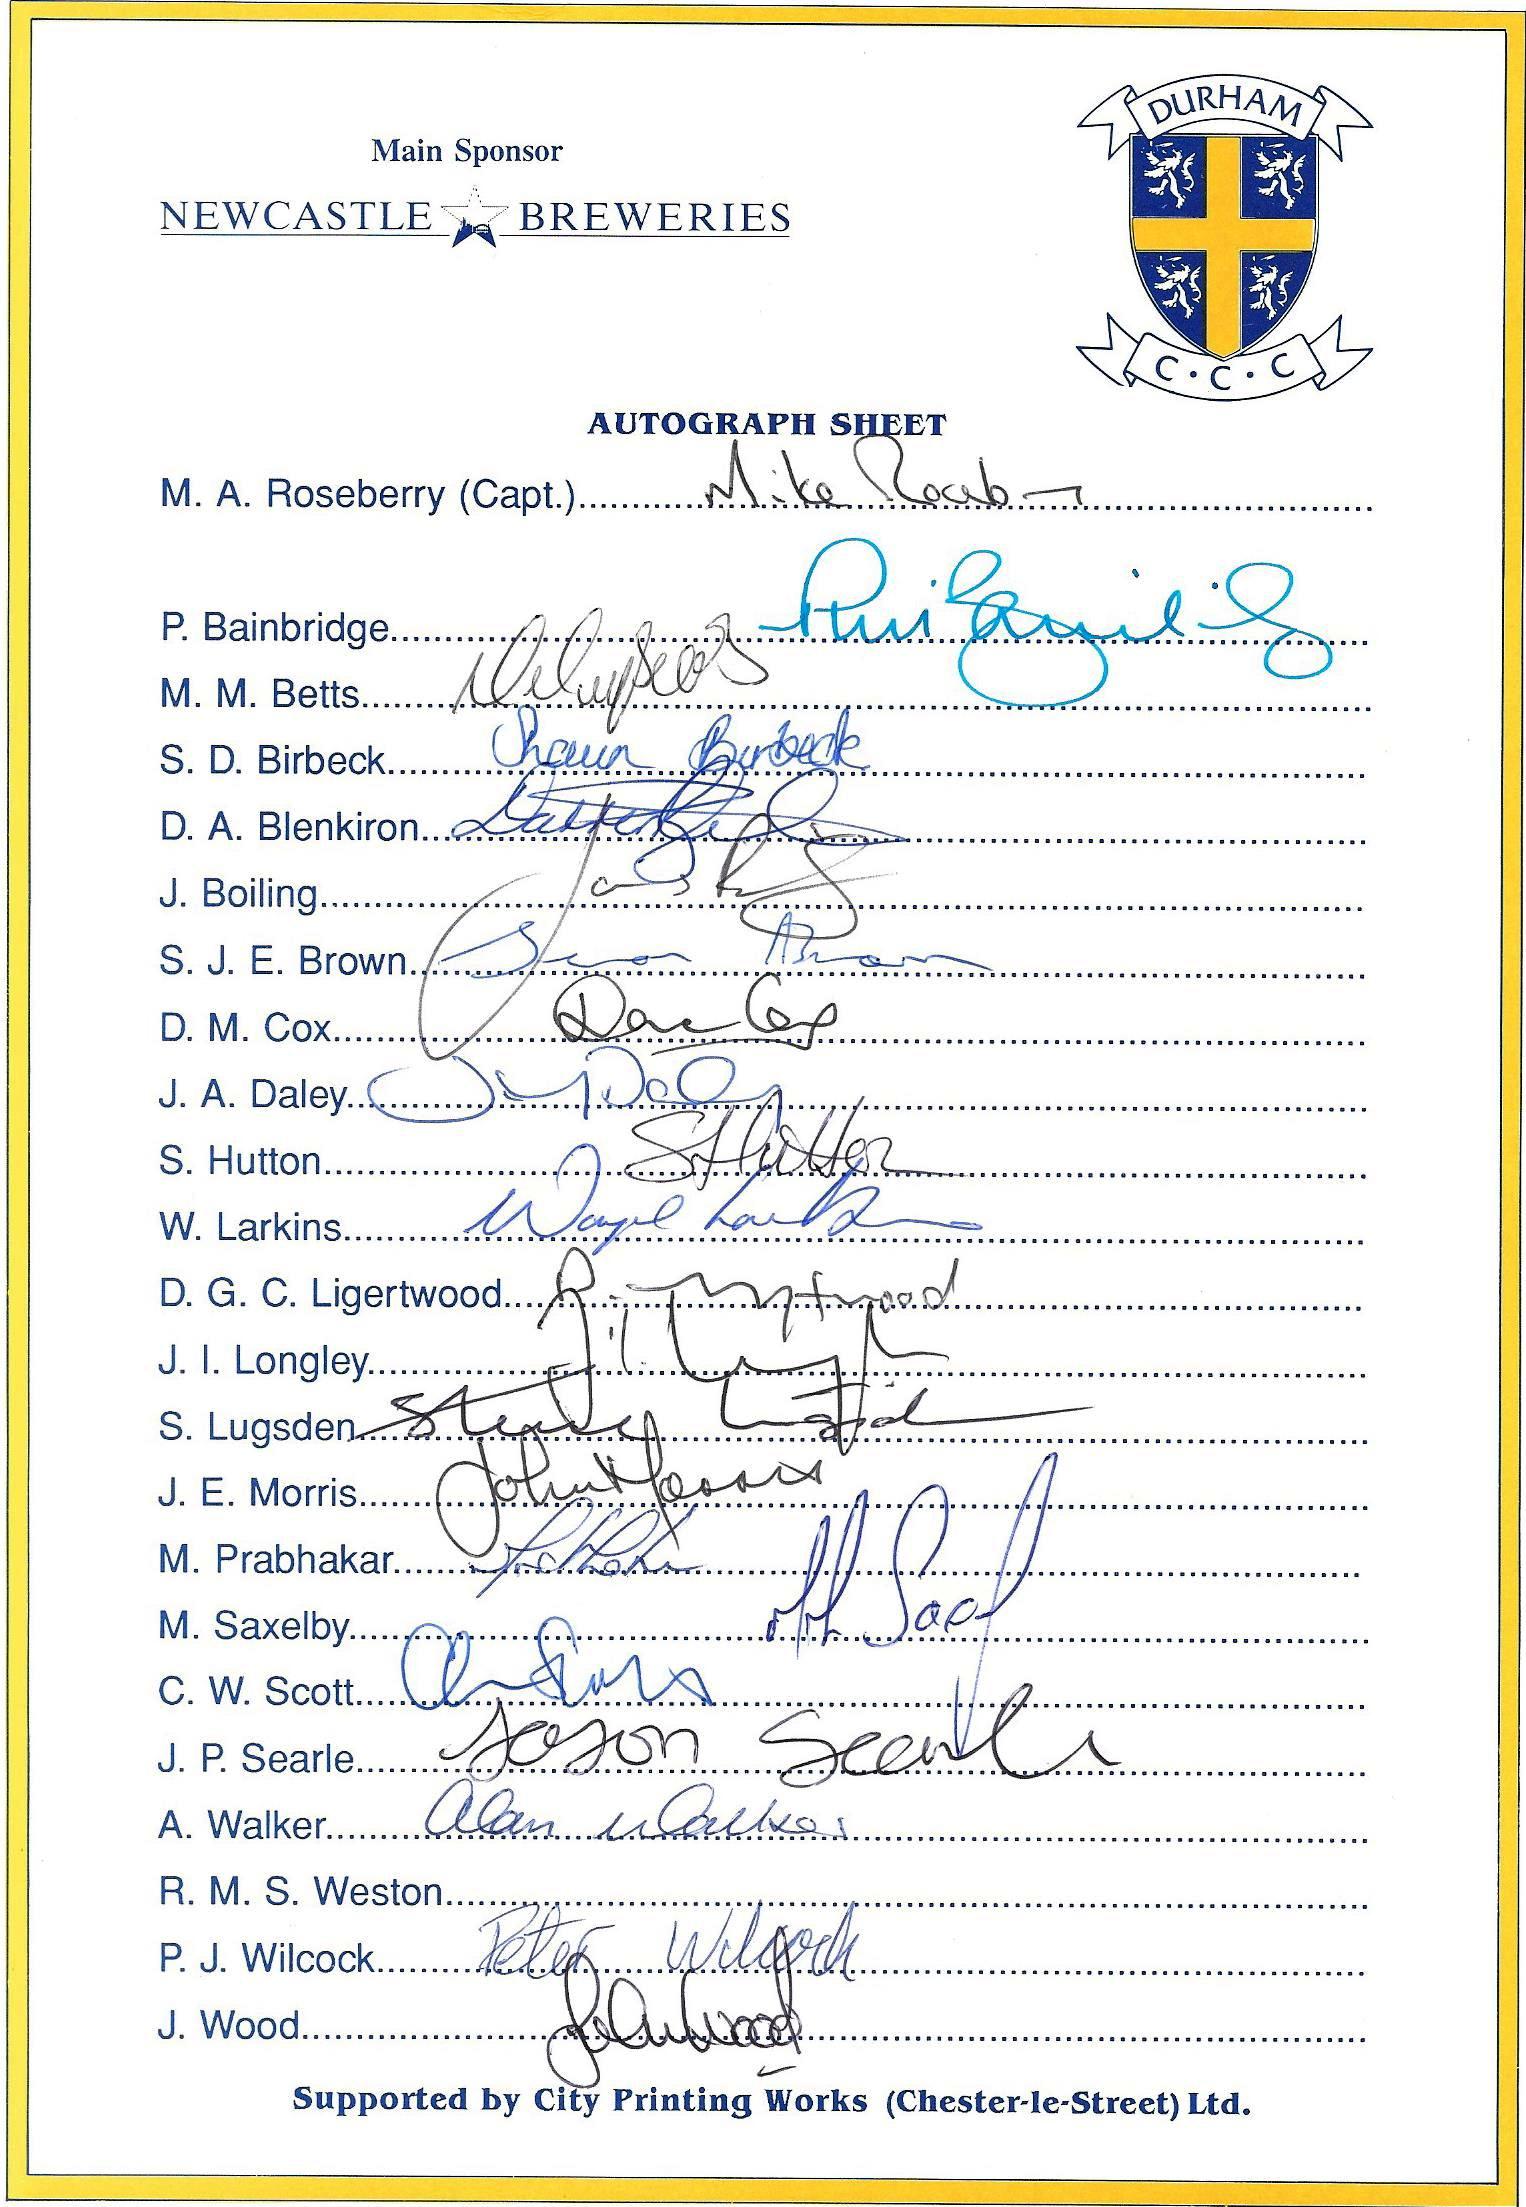 DURHAM
Main Sponsor
NEWCASTLE BREWERIES
C · C · C
AUTOGRAPH SHEET
M. A. Roseberry (Capt.) Mike
P. Bainbridge
M. M. Betts
S. D. Birbeck Shaun Birbeck
D. A. Blenkiron Darren
J. Boiling James
S. J. E. Brown Simon Brown
D. M. Cox Dave Cox
J. A. Daley Jim Daley
S. Hutton S Hutton
W. Larkins Wayne Larkins
D. G. C. Ligertwood
J. I. Longley
S. Lugsden
J. E. Morris John Morris
M. Prabhakar
M. Saxelby
C. W. Scott
J. P. Searle Jason Searle
A. Walker Alan Walker
R. M. S. Weston
P. J. Wilcock Peter Wilcock
J. Wood John Wood
Supported by City Printing Works (Chester-le-Street) Ltd.